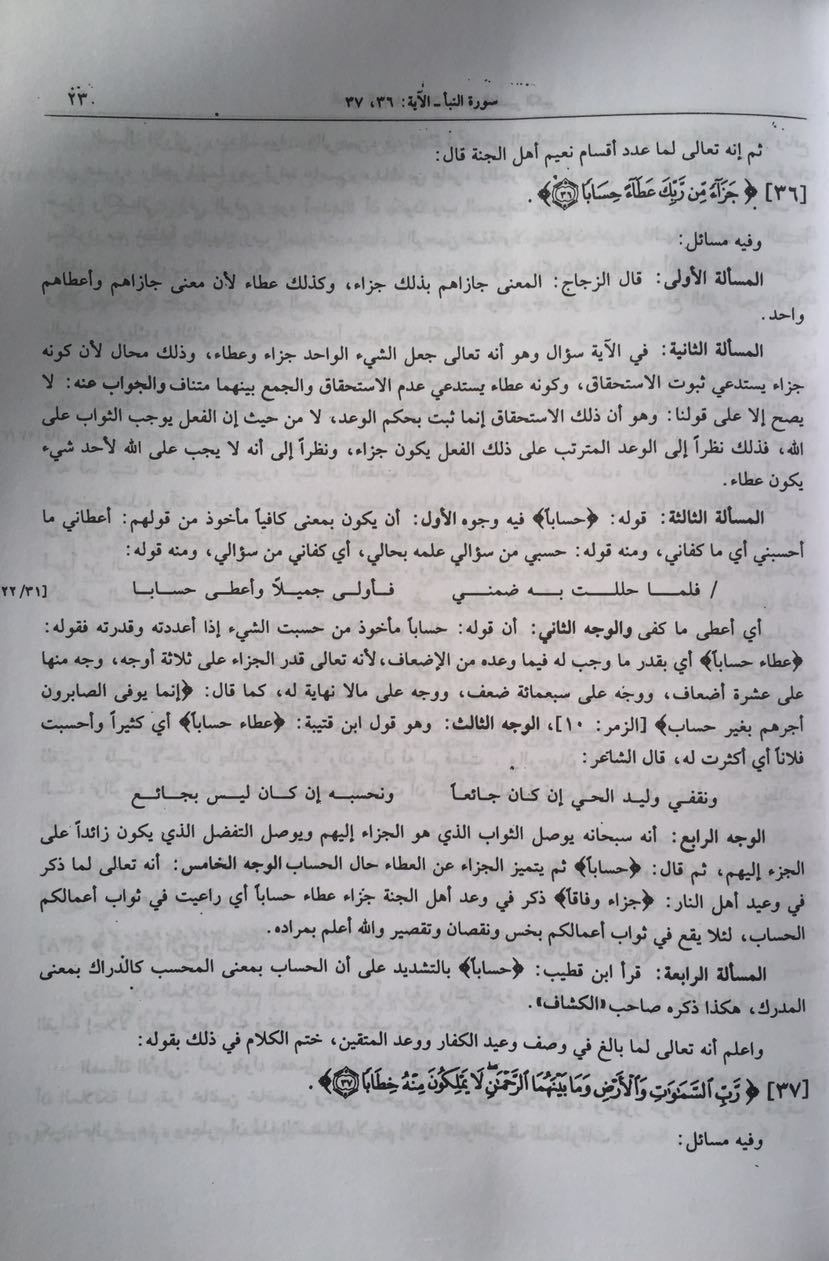 سورة النبأ ـ الآية: ٣٦، ٣٧ ٢٣
ثم إنه تعالى لما عدد أقسام نعيم أهل الجنة قال:
[٣٦] ﴿ جَزَآءً مِّن رَّبِّكَ عَطَآءً حِسَابًا ۝٣٦ ﴾ .
وفيه مسائل:
المسألة الأولى: قال الزجاج: المعنى جازاهم بذلك جزاء، وكذلك عطاء لأن معنى جازاهم وأعطاهم
واحد.
المسألة الثانية: في الآية سؤال وهو أنه تعالى جعل الشيء الواحد جزاء وعطاء، وذلك محال لأن كونه
جزاء يستدعي ثبوت الاستحقاق، وكونه عطاء يستدعي عدم الاستحقاق والجمع بينهما متناف والجواب عنه: لا
يصح إلا على قولنا: وهو أن ذلك الاستحقاق إنما ثبت بحكم الوعد، لا من حيث إن الفعل يوجب الثواب على
الله، فذلك نظراً إلى الوعد المترتب على ذلك الفعل يكون جزاء، ونظراً إلى أنه لا يجب على الله لأحد شيء
يكون عطاء.
المسألة الثالثة: قوله: ﴿حساباً﴾ فيه وجوه الأول: أن يكون بمعنى كافياً مأخوذ من قولهم: أعطاني ما
أحسبني أي ما كفاني، ومنه قوله: حسبي من سؤالي علمه بحالي، أي كفاني من سؤالي، ومنه قوله:
/ فلمـا حللـت بـه ضمنـي فـأولى جميـلاً وأعطـى حسـابـا [٢٢/٣١
أي أعطى ما كفى والوجه الثاني: أن قوله: حساباً مأخوذ من حسبت الشيء إذا أعددته وقدرته فقوله:
﴿عطاء حساباً﴾ أي بقدر ما وجب له فيما وعده من الإضعاف، لأنه تعالى قدر الجزاء على ثلاثة أوجه، وجه منها
على عشرة أضعاف، ووجه على سبعمائة ضعف، ووجه على مالا نهاية له، كما قال: ﴿إنما يوفى الصابرون
أجرهم بغير حساب﴾ [الزمر: ١٠]، الوجه الثالث: وهو قول ابن قتيبة: ﴿عطاء حساباً﴾ أي كثيراً وأحسبت
فلاناً أي أكثرت له، قال الشاعر:
ونقفي وليد الحي إن كان جائعاً ونحسبه إن كان ليس بجائع
الوجه الرابع: أنه سبحانه يوصل الثواب الذي هو الجزاء إليهم ويوصل التفضل الذي يكون زائداً على
الجزء إليهم، ثم قال: ﴿حساباً﴾ ثم يتميز الجزاء عن العطاء حال الحساب الوجه الخامس: أنه تعالى لما ذكر
في وعيد أهل النار: ﴿جزاء وفاقاً﴾ ذكر في وعد أهل الجنة جزاء عطاء حساباً أي راعيت في ثواب أعمالكم
الحساب، لئلا يقع في ثواب أعمالكم بخس ونقصان وتقصير والله أعلم بمراده.
المسألة الرابعة: قرأ ابن قطيب: ﴿حساباً﴾ بالتشديد على أن الحساب بمعنى المحسب كالدراك بمعنى
المدرك، هكذا ذكره صاحب «الكشاف».
واعلم أنه تعالى لما بالغ في وصف وعيد الكفار ووعد المتقين، ختم الكلام في ذلك بقوله:
[٣٧] ﴿ رَّبِّ ٱلسَّمَٰوَٰتِ وَٱلْأَرْضِ وَمَا بَيْنَهُمَا ٱلرَّحْمَٰنِ ۖ لَا يَمْلِكُونَ مِنْهُ خِطَابًا ۝٣٧ ﴾ .
وفيه مسائل: